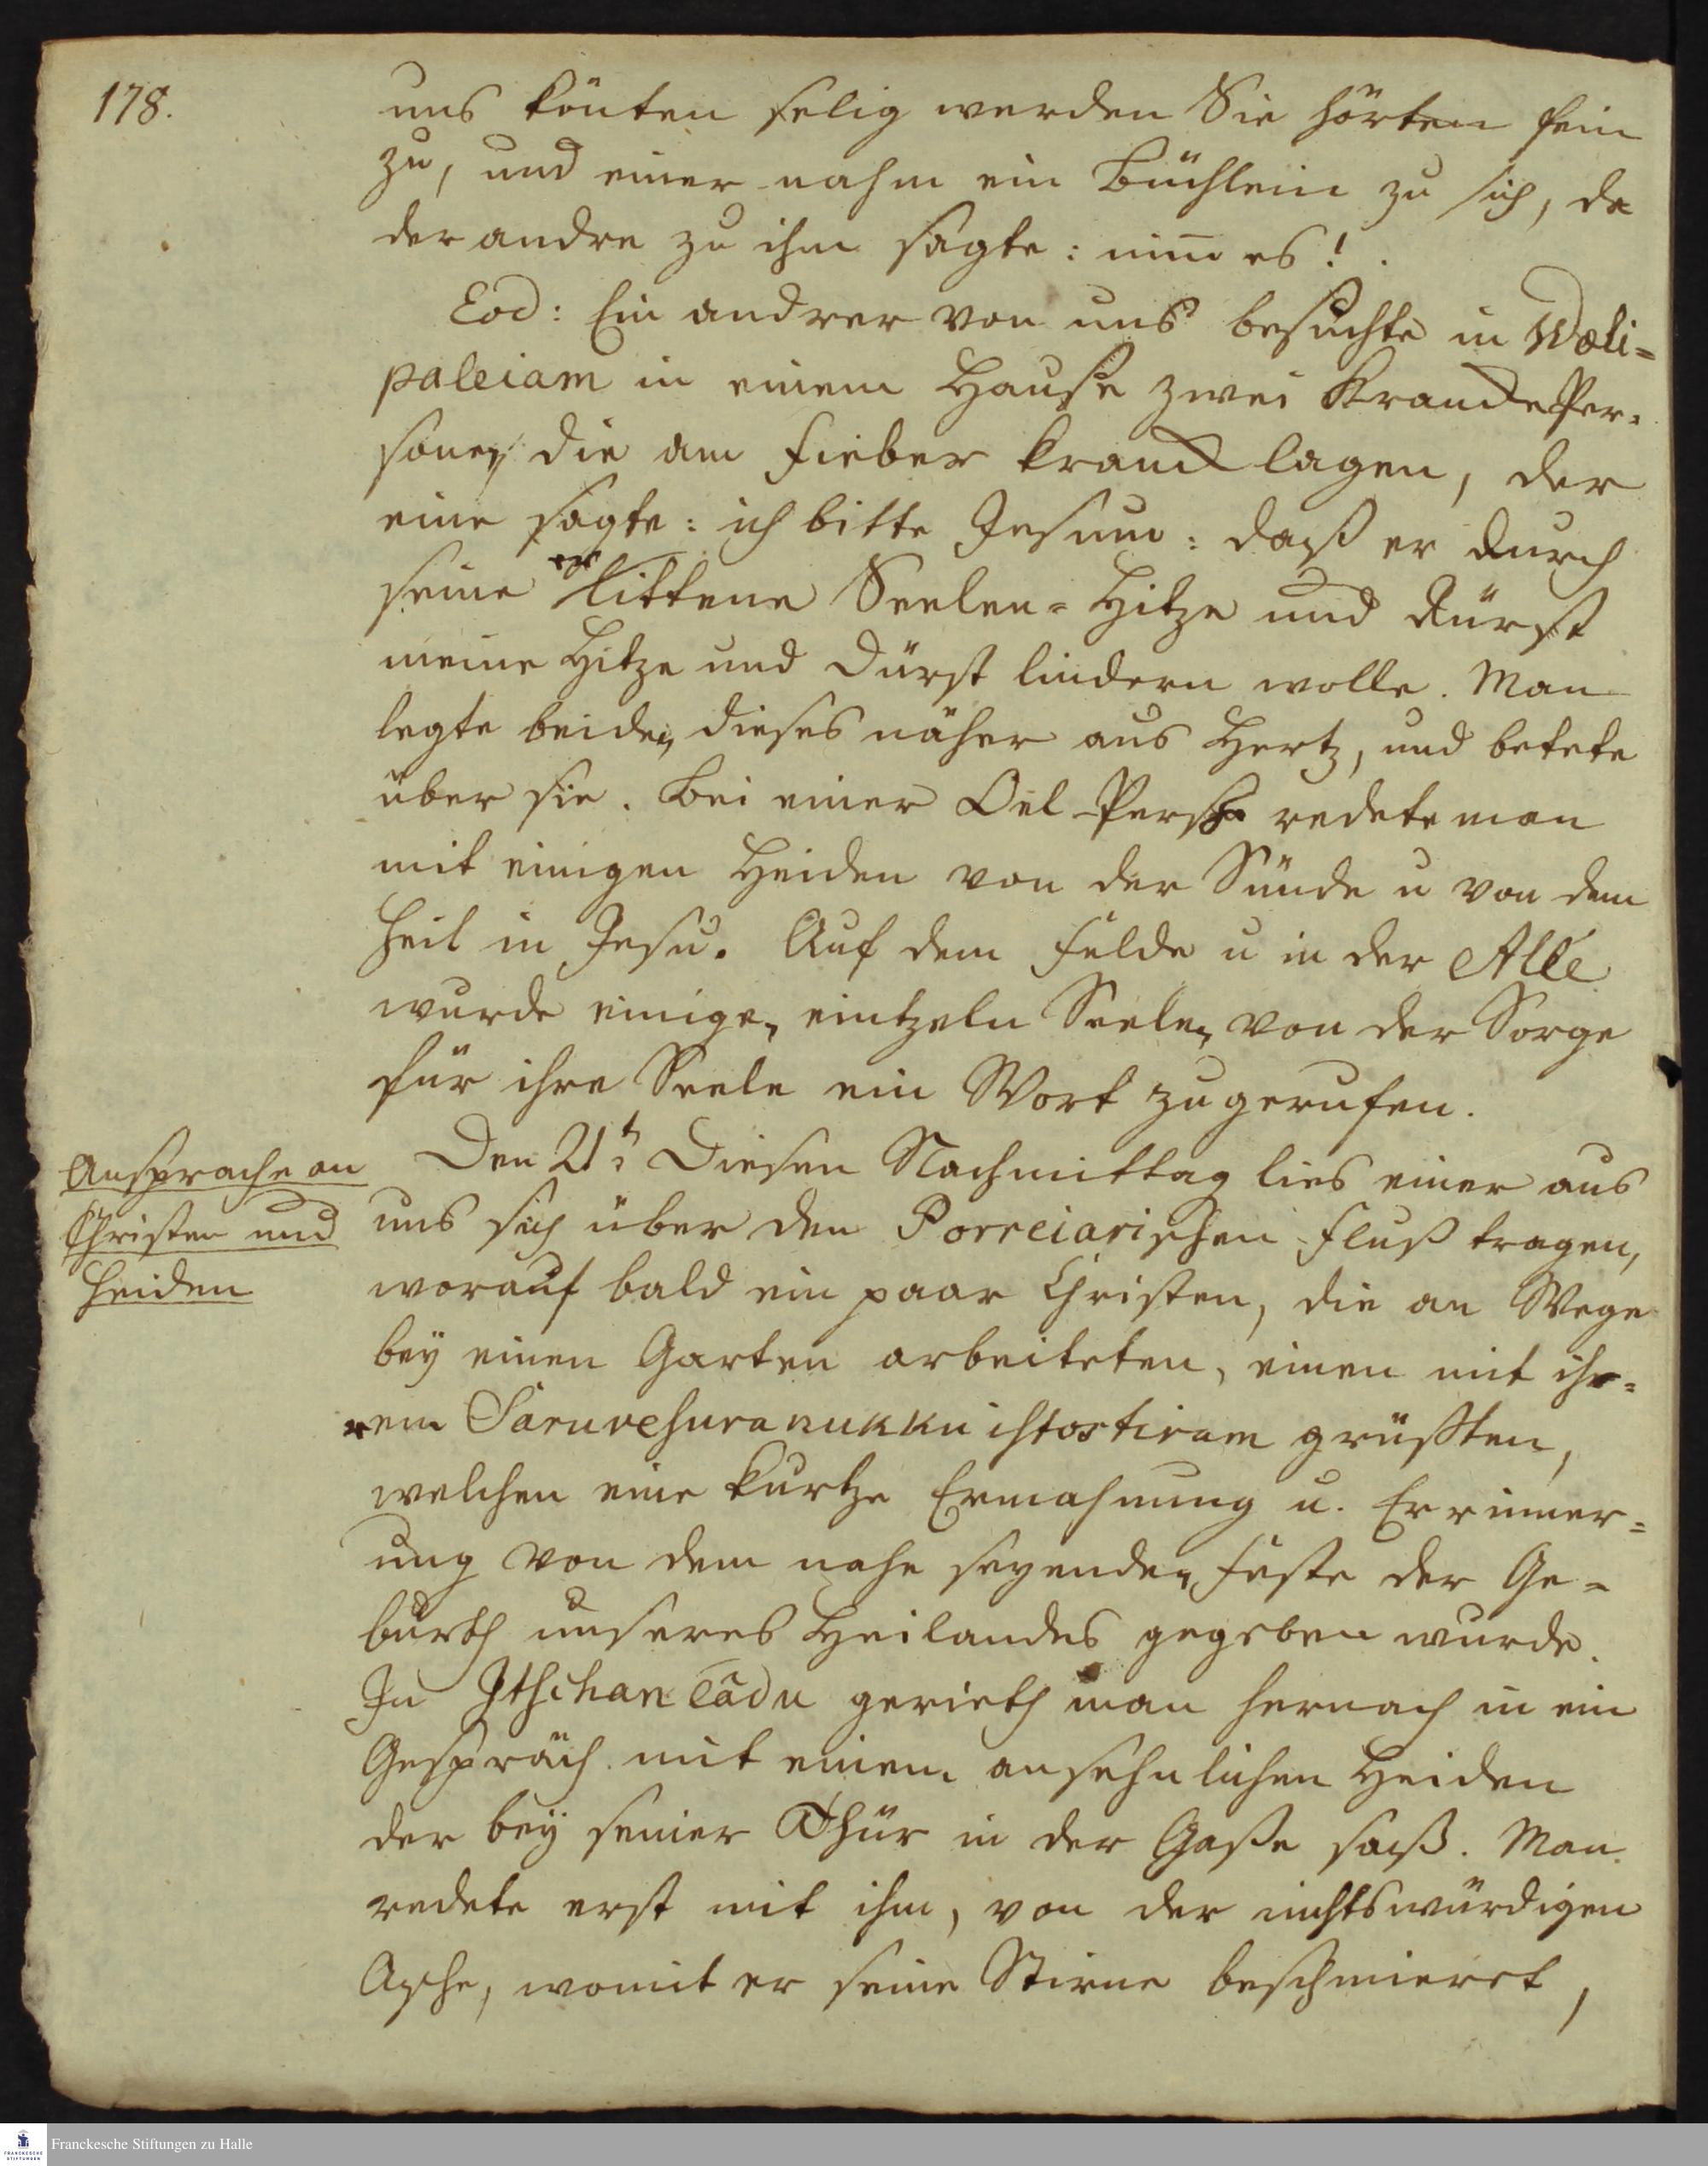 178.
uns könten selig werden Sie hörten fein
zu, und einer nahm ein Büchlein zu sich, da
der andre zu ihm sagte: nim̅ es!
Eod: Ein andrer von uns besuchte in Woeli=
paleiam in einem Hause zwei Krancke Per=
sonen, die am Fieber kranck lagen, der
eine sagte: ich bitte Jesum: daß er durch
seine erlittene Seelen-Hitze und Durst
meine Hitze und Durst lindern wolle. Man
legte beiden dieses näher ans Hertz, und betete
über sie. Bei einer Oel-Perße redete man
mit einigen Heiden von der Sünde u von dem
Heil in Jesu. Auf dem Felde u in der Allé
wurde einigen eintzeln Seelen von der Sorge
für ihre Seele ein Wort zugerufen.
Ansprache an
Christen und
Heiden
Den 21t. Diesen Nachmittag lies einer aus
uns sich über den Porreiarischen Fluß tragen,
worauf bald ein paar Christen, die an Wege
bey einen Garten arbeiteten, einen mit ih=
rem Saruvesuranukku istostiram grüßten,
welchen eine kurtze Ermahnung u. Errinner=
ung von dem nahe seyenden Feste der Ge=
burth unseres Heilandes gegeben wurde.
In Itschancādu gerieth man hernach in ein
Gespräch mit einem ansehnlichen Heiden
der bey seiner Thür in der Gaße saß. Man
redete erst mit ihm, von der nichtswürdigen
Asche, womit er seine Stirne beschmieret,
Franckesche Stiftungen zu Halle